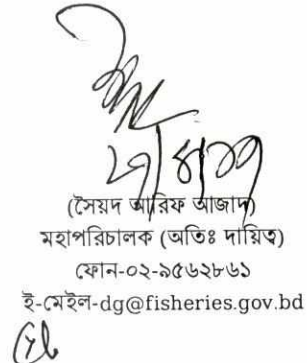 (সৈয়দ আরিফ আজাদ)
মহাপরিচালক (অতিঃ দায়িত্ব)
ফোন-০২-৯৫৬২৮৬১
ই-মেইল-dg@fisheries.gov.bd